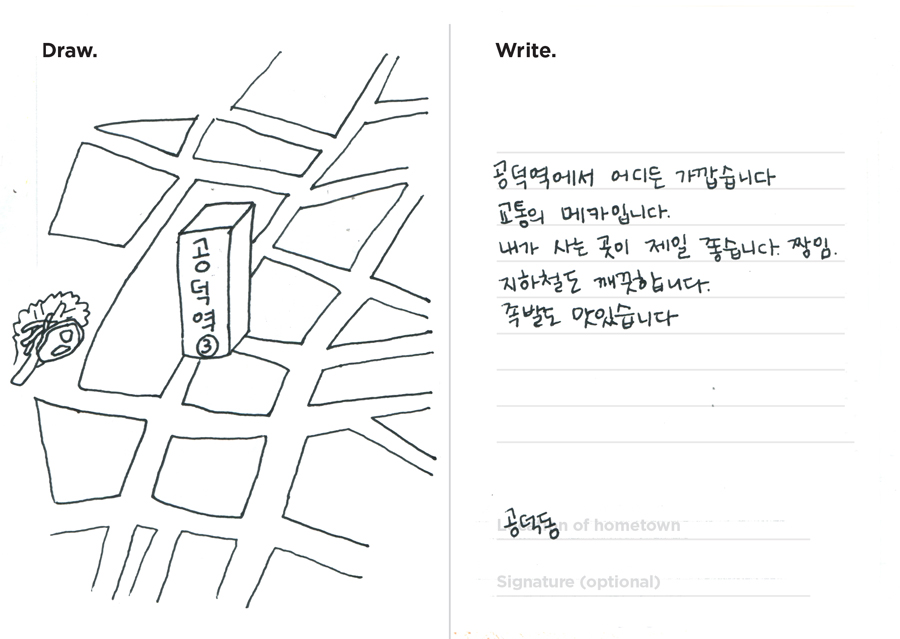 Draw.
공덕역
3
Write.
공덕역에서 어디든 가깝습니다
교통의 메카입니다.
내가 사는 곳이 제일 좋습니다. 짱임.
지하철도 깨끗합니다.
족발도 맛있습니다
공덕동
Location of hometown
Signature (optional)